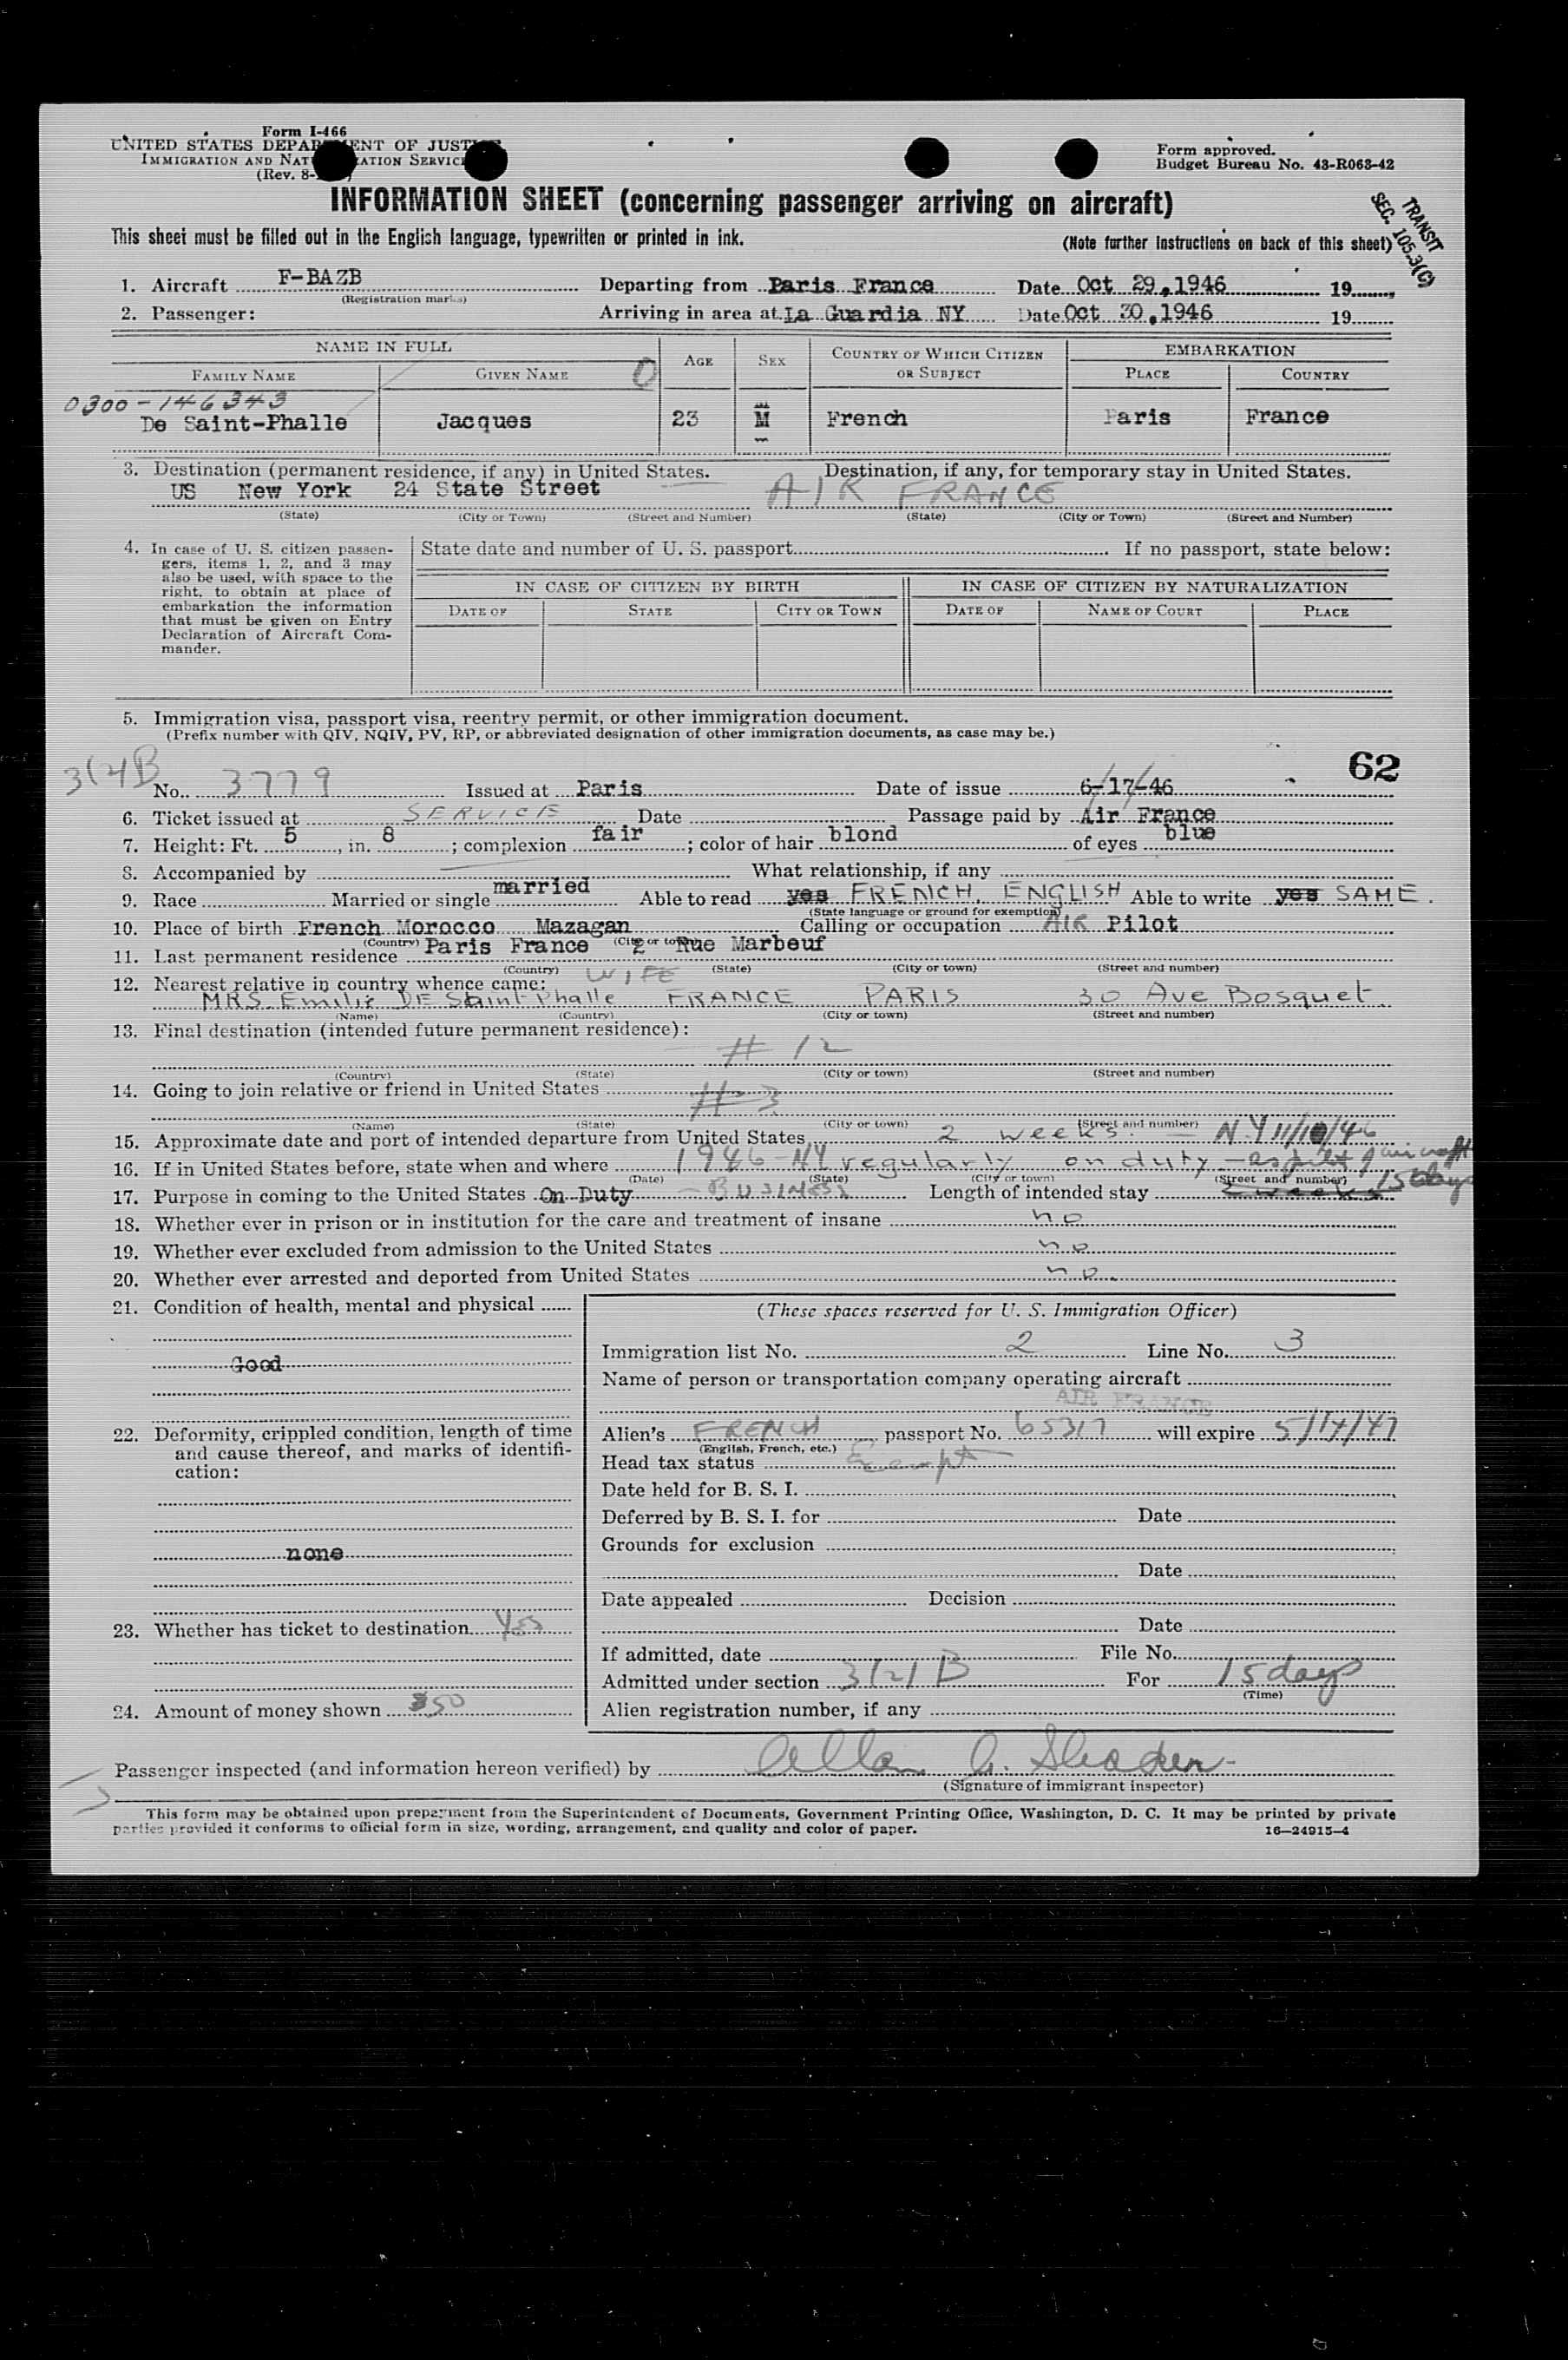 Form I-466
UNITED STATES DEPARTMENT OF JUSTICE
IMMIGRATION AND NATURALIZATION SERVICE
(Rev. 8-
Form approved.
Budget Bureau No. 43-R063-42
INFORMATION SHEET (concerning passenger arriving on aircraft)
TRANSIT
SEC. 105.3(C)
This sheet must be filled out in the English language, typewritten or printed in ink.
(Note further instructions on back of this sheet)
1. Aircraft F-BAZB Departing from Paris France Date Oct 29, 1946 19
(Registration marks)
2. Passenger: Arriving in area at La Guardia NY Date Oct 30, 1946 19
NAME IN FULL AGE SEX COUNTRY OF WHICH CITIZEN OR SUBJECT EMBARKATION
FAMILY NAME GIVEN NAME 0 PLACE COUNTRY
0300-146343
De Saint-Phalle Jacques 23 M French Paris France
3. Destination (permanent residence, if any) in United States. Destination, if any, for temporary stay in United States.
US New York 24 State Street AIR FRANCE
(State) (City or Town) (Street and Number) (State) (City or Town) (Street and Number)
4. In case of U. S. citizen passengers, items 1, 2, and 3 may also be used, with space to the right, to obtain at place of embarkation the information that must be given on Entry Declaration of Aircraft Commander.
State date and number of U. S. passport If no passport, state below:
IN CASE OF CITIZEN BY BIRTH IN CASE OF CITIZEN BY NATURALIZATION
DATE OF STATE CITY OR TOWN DATE OF NAME OF COURT PLACE
5. Immigration visa, passport visa, reentry permit, or other immigration document.
(Prefix number with QIV, NQIV, PV, RP, or abbreviated designation of other immigration documents, as case may be.)
62
No. 3779 Issued at Paris Date of issue 6-17-46
6. Ticket issued at SERVICE Date Passage paid by Air France
7. Height: Ft. 5, in. 8; complexion fair; color of hair blond of eyes blue
8. Accompanied by What relationship, if any
9. Race Married or single married Able to read yes FRENCH, ENGLISH Able to write yes SAME.
(State language or ground for exemption)
10. Place of birth French Morocco Mazagan Calling or occupation AIR Pilot
(Country) (City or town)
11. Last permanent residence Paris France 2 Rue Marbeuf
(Country) (State) (City or town) (Street and number)
12. Nearest relative in country whence came: WIFE
MRS. Emilie DE Saint Phalle FRANCE PARIS 30 Ave Bosquet
(Name) (Country) (City or town) (Street and number)
13. Final destination (intended future permanent residence):
# 12
(Country) (State) (City or town) (Street and number)
14. Going to join relative or friend in United States
#3
(Name) (State) (City or town) (Street and number)
15. Approximate date and port of intended departure from United States 2 weeks. - N.Y 11/10/46
16. If in United States before, state when and where 1946-NY regularly on duty - as pilot of aircraft
(Date) (State) (City or town) (Street and number)
17. Purpose in coming to the United States On Duty - BUSINESS Length of intended stay 2 weeks 15 days
18. Whether ever in prison or in institution for the care and treatment of insane no
19. Whether ever excluded from admission to the United States no
20. Whether ever arrested and deported from United States no.
21. Condition of health, mental and physical
Good
22. Deformity, crippled condition, length of time and cause thereof, and marks of identification:
none
23. Whether has ticket to destination Yes
24. Amount of money shown $50
(These spaces reserved for U. S. Immigration Officer)
Immigration list No. 2 Line No. 3
Name of person or transportation company operating aircraft
AIR FRANCE
Alien's FRENCH passport No. 65317 will expire 5/14/47
(English, French, etc.)
Head tax status Exempt
Date held for B. S. I.
Deferred by B. S. I. for Date
Grounds for exclusion
Date
Date appealed Decision
Date
If admitted, date File No.
Admitted under section 3(2) B For 15 days
(Time)
Alien registration number, if any
Passenger inspected (and information hereon verified) by
(Signature of immigrant inspector)
This form may be obtained upon prepayment from the Superintendent of Documents, Government Printing Office, Washington, D. C. It may be printed by private
parties provided it conforms to official form in size, wording, arrangement, and quality and color of paper.
16—24915-4